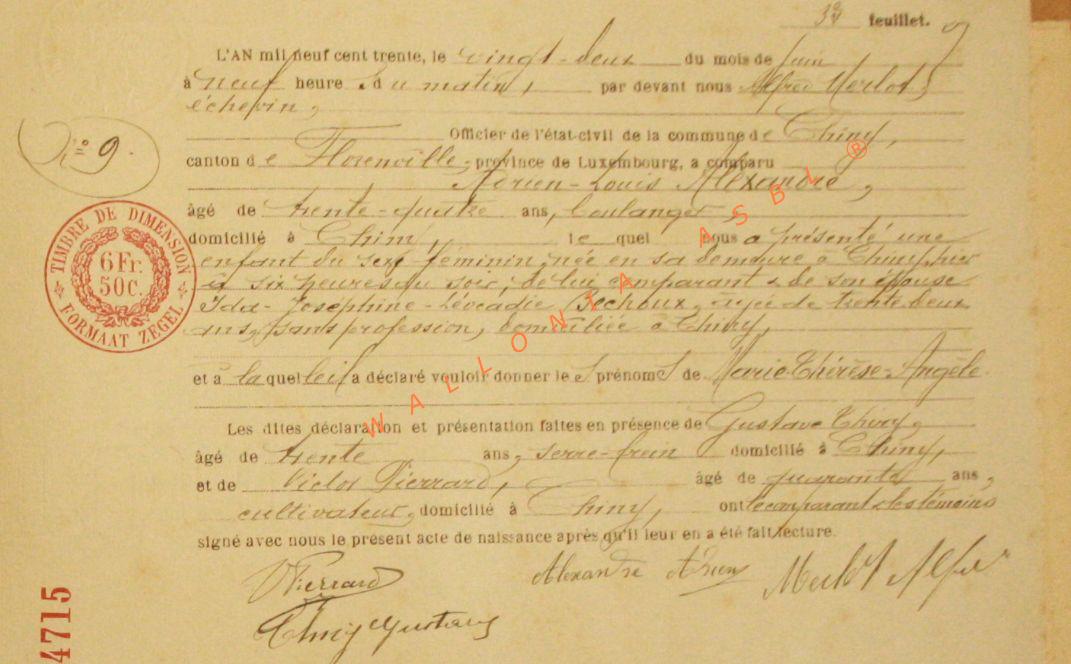 3ē feuillet.
L'AN mil neuf cent trente, le vingt-deux du mois de juin
à neuf heures du matin, par devant nous Alfred Merlot,
échevin,
Officier de l'état-civil de la commune de Chiny,
N° 9.
canton de Florenville, province de Luxembourg, a comparu
Adrien-Louis Alexandre,
âgé de trente-quatre ans, boulanger,
domicilié à Chiny, le quel nous a présenté une
enfant du sexe féminin, née en sa demeure à Chiny, hier
à six heures du soir, de lui comparant & de son épouse
Ida-Joséphine-Léocadie, âgée de trente deux
ans, sans profession, domiciliée à Chiny,
et à laquelle il a déclaré vouloir donner les prénoms de Marie-Thérèse-Angèle.
Les dites déclaration et présentation faites en présence de Gustave Thiry,
âgé de trente ans, serre-frein domicilié à Chiny,
et de Victor Pierrard, âgé de quarante ans,
cultivateur, domicilié à Chiny, ont le comparant & les témoins
signé avec nous le présent acte de naissance après qu'il leur en a été fait lecture.
VPierrard Alexandre Adrien Merlot Alfred
Thiry Gustave
TIMBRE DE DIMENSION
6 Fr.
50C.
FORMAAT ZEGEL
4715
WALLONIA ASBL ®